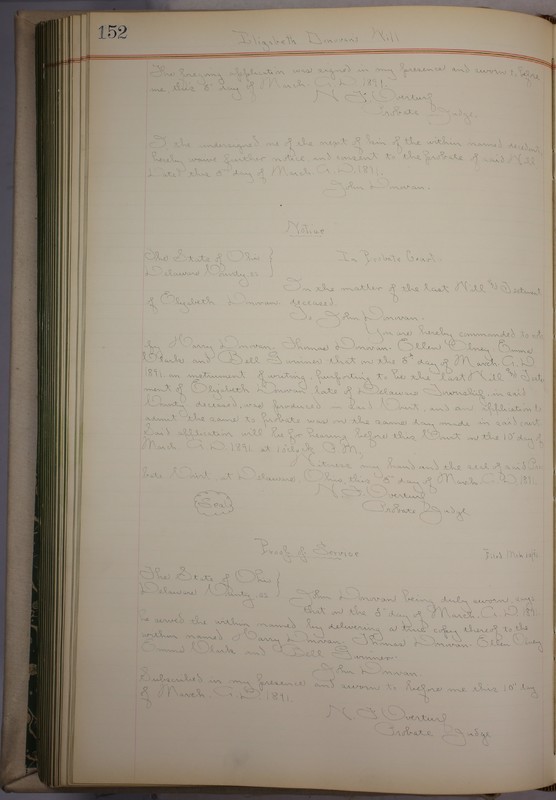 152
Elizabeth Donovan Will
The foregoing application was signed in my presence and sworn to before
me, this 5" day of March A.D. 1891.
N. F. Overturf
Probate Judge.
I the undersigned one of the next of kin of the within named decedent
hereby waive further notice and consent to the probate of said Will
Dated this 5" day of March A.D. 1891.
John Donovan.
Notice
The State of Ohio }
Delaware County, ss }
In Probate Court.
In the matter of the last Will & Testament
of Elizabeth Donovan deceased.
To John Donovan.
You are hereby commanded to
Harry Donovan, Thomas Donovan, Ellen Emma
and Bell that on the 5" day of March A.D.
1891 an instrument of writing, purporting to be the last Will & Testa
ment of Elizabeth Donovan late of Delaware Township, in said
County deceased, was produced in said Court, and an application to
admit the same to probate was on the same day made in said Court
Said application will be for hearing before this Court on the 10" day of
March A.D. 1891 at 1 o'clock P.M.
Witness my hand and the seal of said Pro
bate Court at Delaware, Ohio, this 5" day of March A.D. 1891.
N. F. Overturf
Probate Judge
Seal
Proof of Service
Filed Mch 10/91
The State of Ohio }
Delaware County, ss }
John Donovan being duly sworn says
that on the day of March A.D. 1891
he served the within named by delivering a true copy thereof to the
within named Harry Donovan, Thomas Donovan, Ellen
Emma and Bell
John Donovan.
Subscribed in my presence and sworn to before me this 10" day
of March A.D. 1891.
N. F. Overturf
Probate Judge